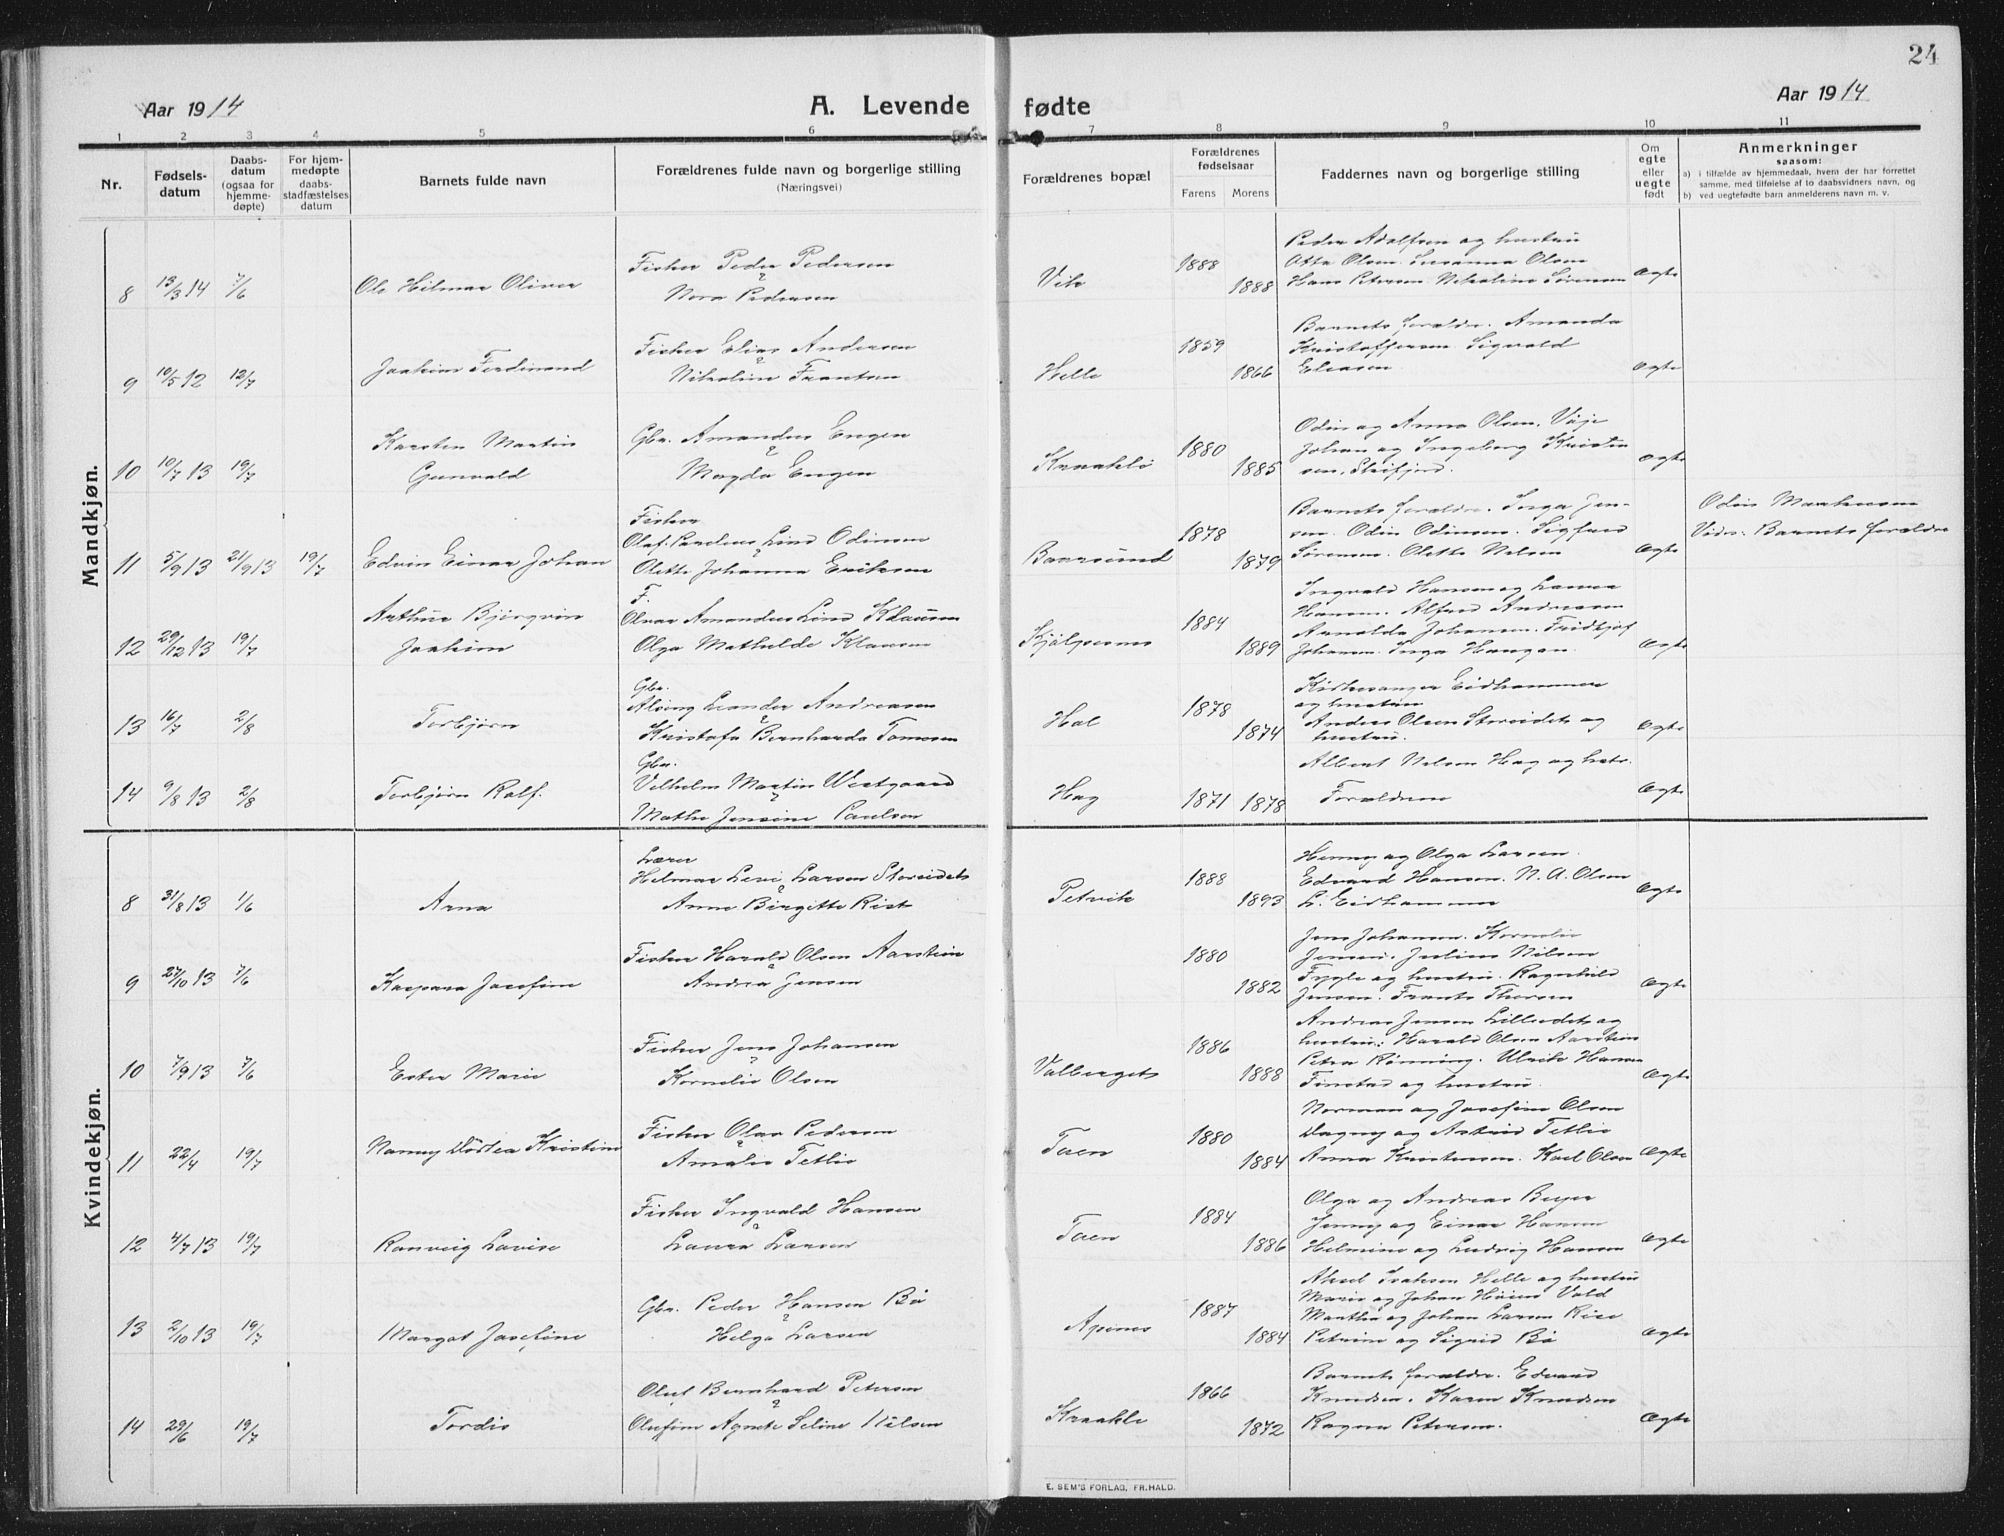 24
Aar 1914
A. Levende fødte
Aar 1914
1 2 3 4 5 6 7 8 9 10 11
Nr.
Fødsels-
datum
Daabs-
datum
(ogsaa for
hjemme-
døpte)
For hjem-
medøpte
daabs-
stadfæstelses
datum
Barnets fulde navn
Forældrenes fulde navn og borgerlige stilling
(Næringsvei)
Forældrenes bopæl
Forældrenes
fødselsaar
Farens Morens
Faddernes navn og borgerlige stilling
Om
egte
eller
uegte
født
Anmerkninger
saasom:
a) i tilfælde av hjemmedaab, hvem der har forrettet
samme, med tilføielse af to daabsvidners navn, og
b) ved uegtefødte barn anmelderens navn m. v.
Mandkjøn.
8 13/3 14 7/6 Ole Hilmar Oliver
Fisker Peder Pedersen
Nora Pedersen
Vik 1888 1888
Peder Adolfsen og hustru
Otto Olsen. Susanna Olsen
Hans Petersen. Nikoline Sørensen
Ægte
9 10/5 12 12/7 Joakim Ferdinand
Fisker Elias Andersen
Nikoline Frantsen
Helle 1859 1866
Barnets forældre. Amanda
Kristoffersen. Sigvald
Eleasen
Ægte
10 10/7 13 19/7 Karsten Martin
Gunvald
Gbr. Amandus Engen
Magda Engen
Kraaklø 1880 1885
Odin og Anna Olsen,
Johan og Ingeborg Kristen
sen,
Ægte
11 5/9 13 21/9 13 19/7 Edvin Einar Johan
Fisker
Olaf Paulus Lind Odinsen
Olette Johanna Eriksen
Baarsund 1878 1879
Barnets forældre. Inga Jen-
sen. Odin Odinsen. Sigfred
Sørensen. Olette Nilsen
Ægte
Odin Markussen
Vidn: Barnets forældre
12 29/12 13 19/7 Arthur Bjørgvin
Joakim
F.
Olvar Amandus Lind Klausen
Olga Mathilde Klausen
Kjølpesnes 1884 1889
Ingvald Hansen og Laura
Hansen. Alfred Andreassen
Arnolda Johansen. Fridtjof
Johansen. Inga Haugan.
Ægte
13 16/7 2/8 Torbjørn
Gbr.
Leander Andreasen
Kristofa Bernharda Tomesen
Hol 1878 1874
Kirkesanger Eidhammer
og hustru
Anders Olsen Storeidet og
hustru.
Ægte
14 9/8 13 2/8 Torbjørn Rolf.
Gbr.
Vilhelm Martin Westgaard
Mathe Jensine Paulsen
Hag 1871 1878
Albert Nilsen Hag og hstr.
Forældrene
Ægte
Kvindekjøn.
8 31/8 13 1/6 Arna
Lærer
Hilmar Levi Larsen Storeidet
Anne Birgitte Rist
Petvik 1888 1893
Henny og Olga Larsen.
Edvard Hansen. N. A. Olsen
L. Eidhammer
Ægte
9 27/10 13 7/6 Kaspara Josefine
Fisker Harald Olsen Aarstein
Andrea Jensen
1880 1882
Jens Johansen. Kornelie
Jensen. Julius Nilsen
Fygle og hustru. Ragnhild
Jensen. Frants Thorsen
Ægte
10 7/9 13 7/6 Ester Marie
Fisker Jens Johansen
Kornelie Olsen
Valberget 1886 1888
Andreas Jensen Lilleeidet og
hustru; Harald Olsen Aarstein
Petra Rønning. Ulrik Hansen
Finstad og hustru.
Ægte
11 22/4 19/7 Nanny Dortea Kristine
Fisker Olav Pedersen
Amalie Tetlie
Taen 1880 1884
Norman og Josefine Olsen
Dagny og Astrid Tetlie
Anna Kristensen. Karl Olsen
Ægte
12 4/7 13 19/7 Ranveig Lovise
Fisker Ingvald Hansen
Laura Larsen
Taen 1884 1886
Olga og Andreas Beyer
Jenny og Einar Hansen
Helmine og Ludvig Hansen
Ægte
13 2/10 13 19/7 Margot Josefine
Gbr. Peder Hansen Bø
Helga Larsen
Apnes 1887 1884
Aksel Isaksen Helle og hustru
Marie og Johan Høien Vold
Martha og Johan Larsen Rise
Petrine og Sigrid Bø
Ægte
14 29/6 19/7 Tordis
Oluf Bernhard Petersen
Olufine Agnete Seline Nilsen
Kraakle 1866 1872
Barnets forældre. Edvard
Knudsen. Karen Knudsen
Ragna Petersen.
Ægte
E. SEM'S FORLAG, FR.HALD.